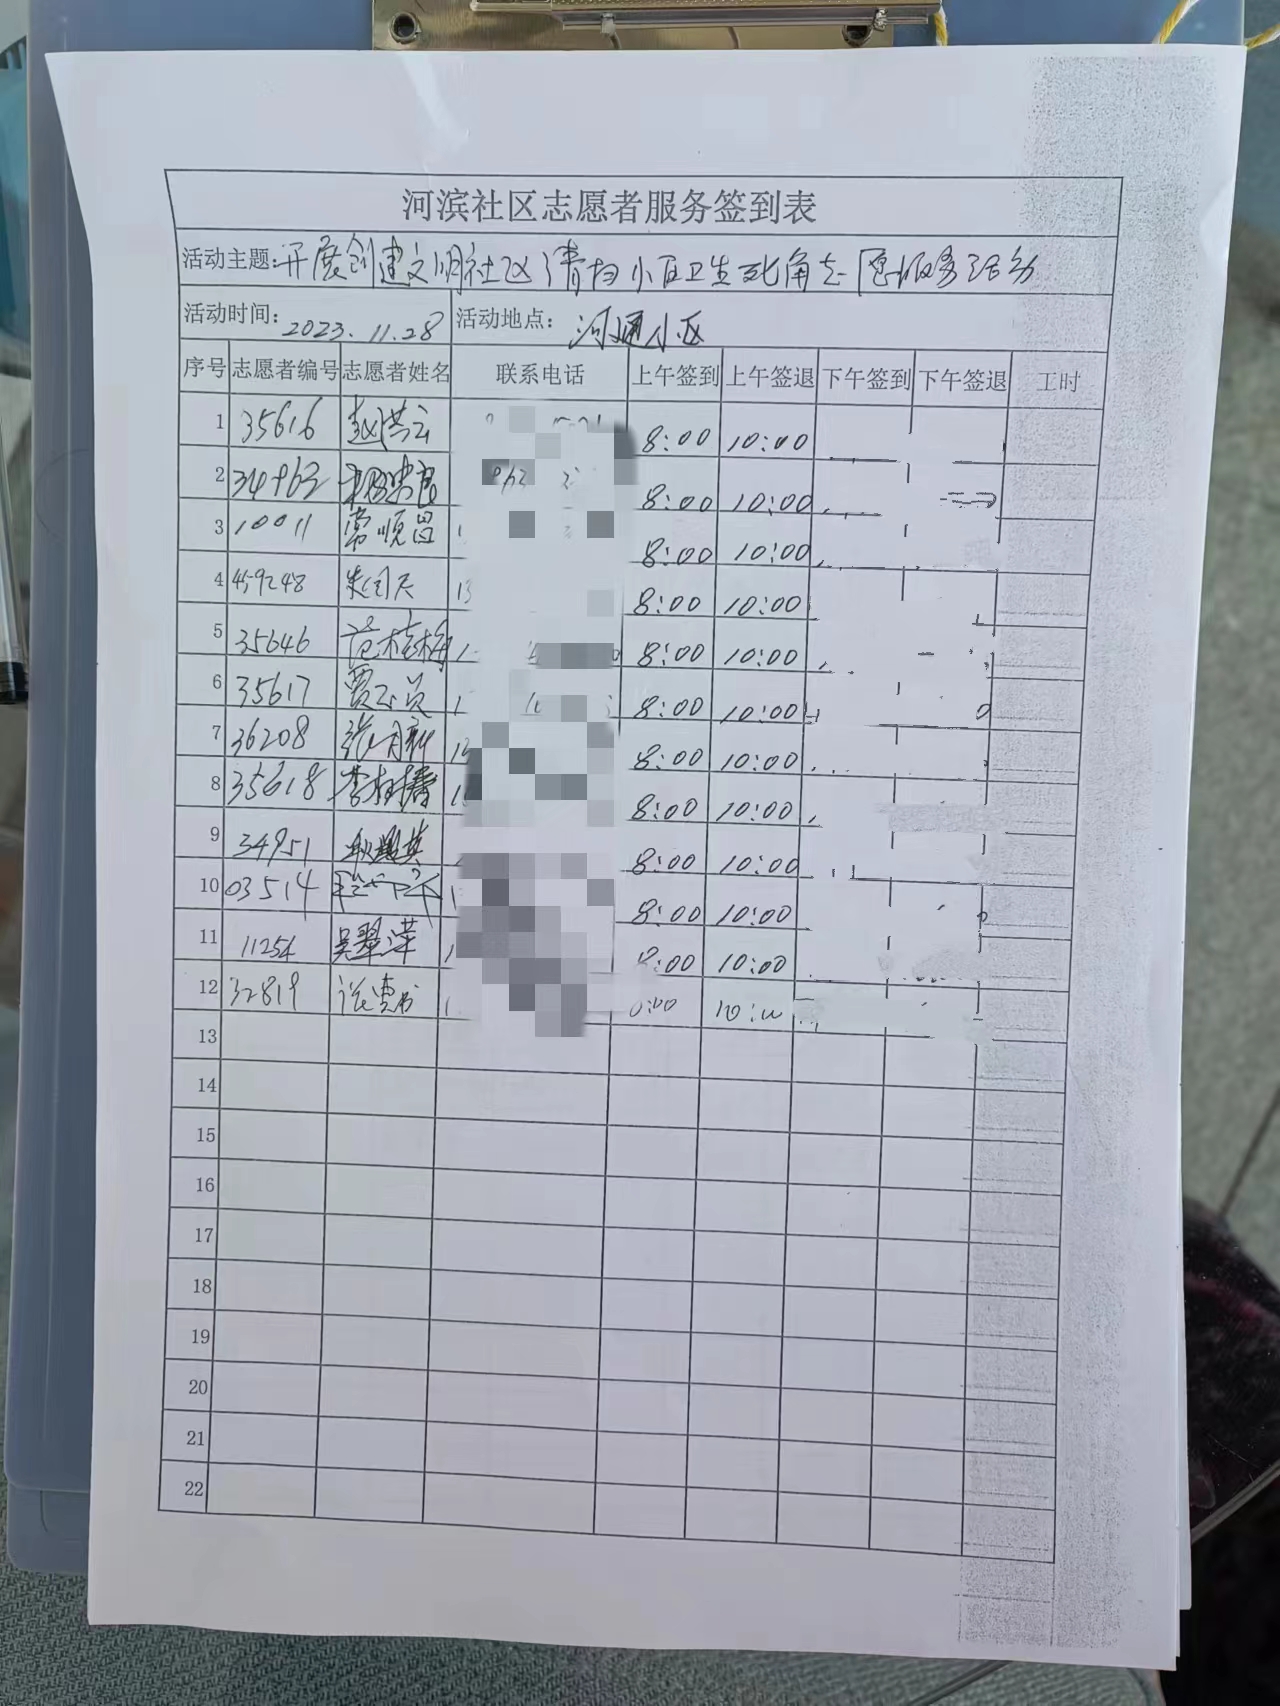 河滨社区志愿者服务签到表
活动主题:开展创建文明社区清扫小区卫生死角志愿服务活动
活动时间: 2023.11.28 活动地点: 河通小区
序号 志愿者编号 志愿者姓名 联系电话 上午签到 上午签退 下午签到 下午签退 工时
1 35616 赵洪云 8:00 10:00
2 34963 8:00 10:00
3 10011 常顺昌 8:00 10:00
4 459248 朱闰天 13 8:00 10:00
5 35646 范桂梅 8:00 10:00
6 35617 贾 8:00 10:00
7 36208 张月新 8:00 10:00
8 35618 李树春 8:00 10:00
9 34951 8:00 10:00
10 03514 8:00 10:00
11 11254 吴翠萍 8:00 10:00
12 32819 :00 10:00
13
14
15
16
17
18
19
20
21
22